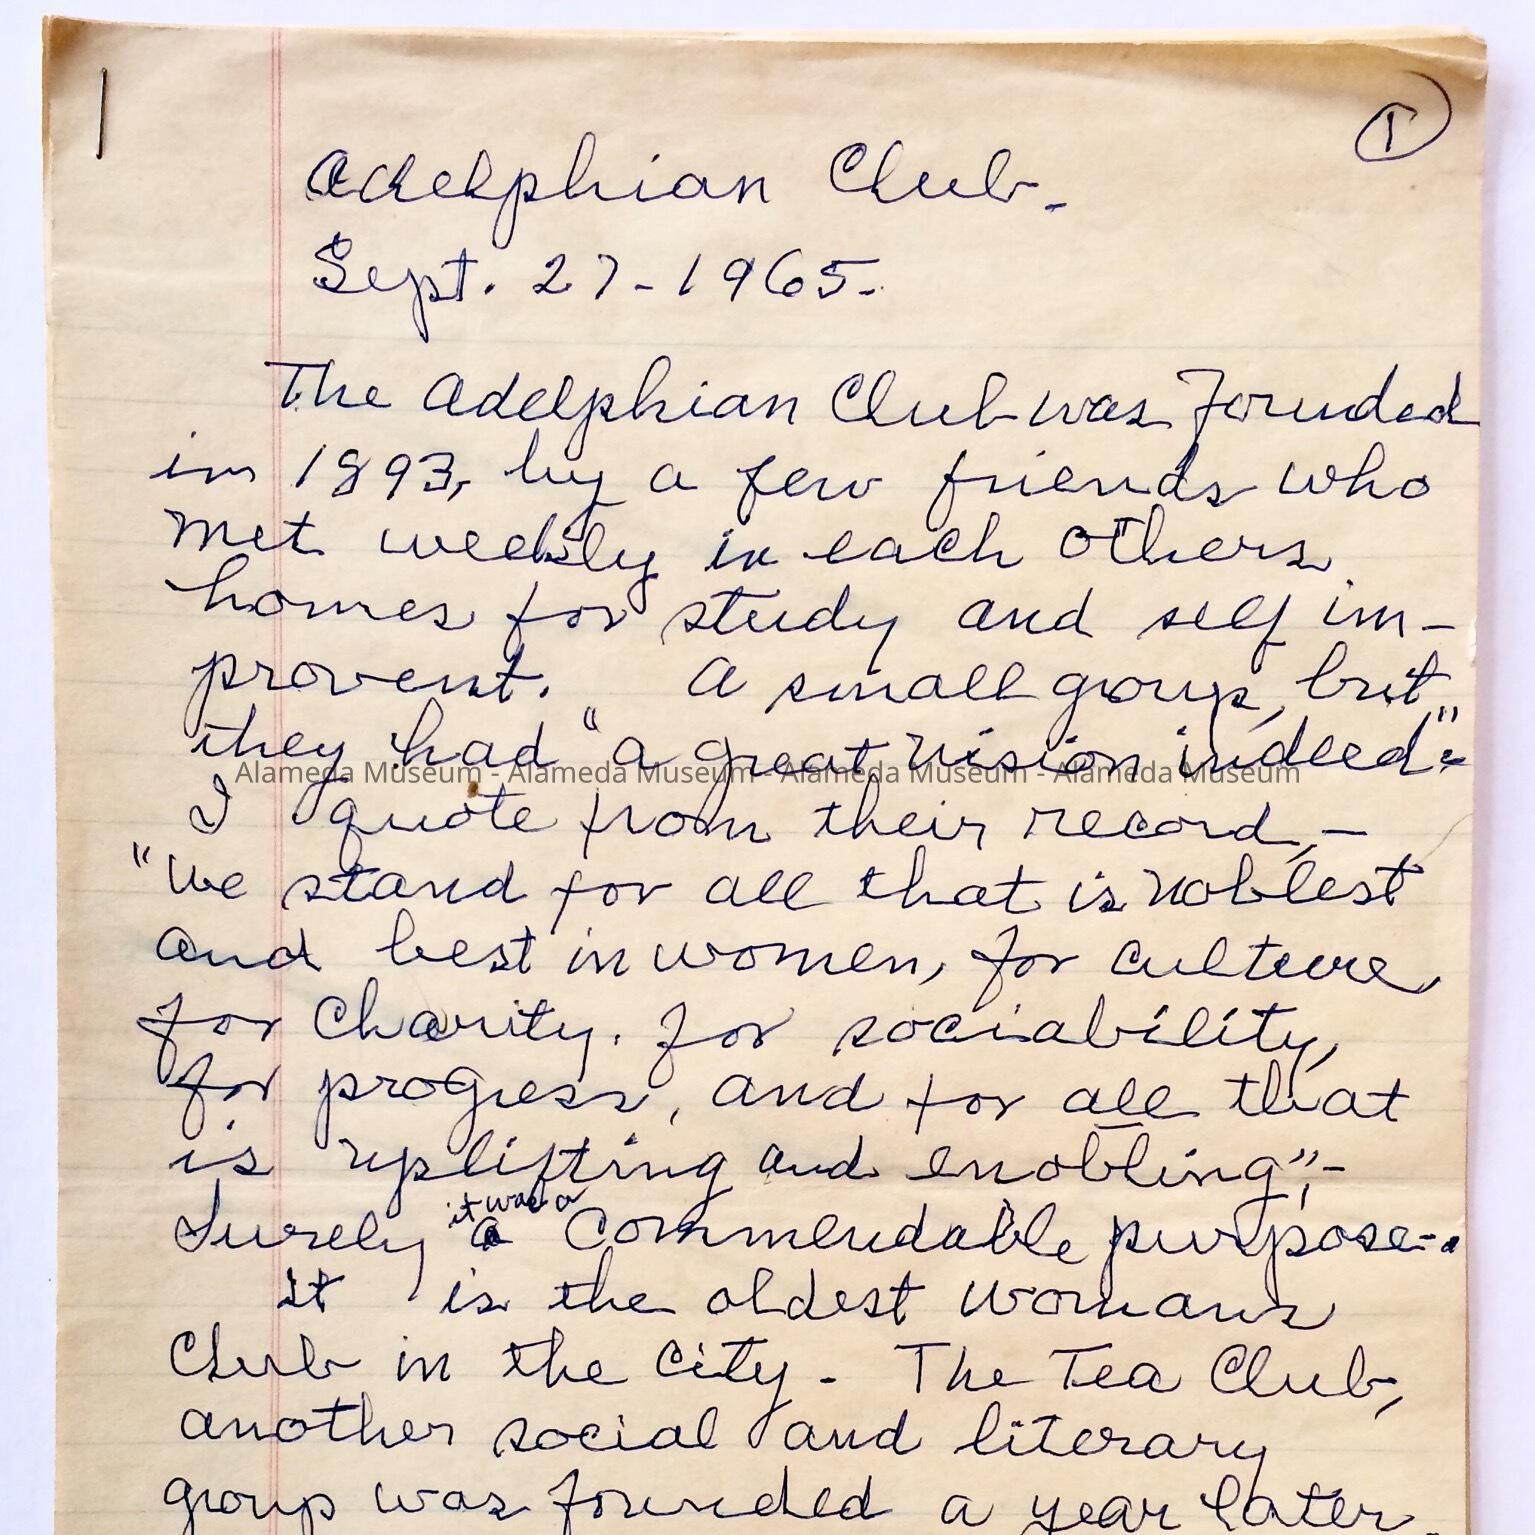 1
Adelphian Club.
Sept. 27-1965.
The Adelphian Club was founded
in 1893, by a few friends who
met weekly in each others
homes for study and self im-
provent. A small group, but
they had "a great vision indeed"-
Alameda Museum - Alameda Museum - Alameda Museum - Alameda Museum
I quote from their record,-
"We stand for all that is noblest
and best in women, for culture,
for charity. for sociability,
for progress, and for all that
is uplifting and enobling",-
it was a
Surely a commendable purpose-.
It is the oldest womans
Club in the city- The Tea Club,
another social and literary
group was founded a year later.